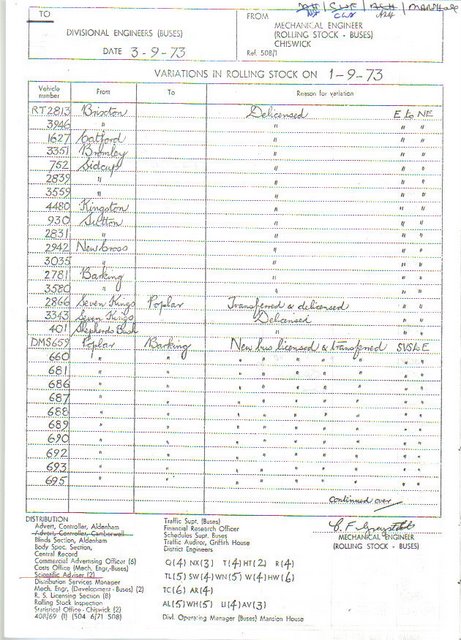 TO
FROM
MECHANICAL ENGINEER
(ROLLING STOCK - BUSES)
CHISWICK
DIVISIONAL ENGINEERS (BUSES)
DATE 3-9-73
Ref. 508/1
VARIATIONS IN ROLLING STOCK ON 1-9-73
Vehicle number From To Reason for variation
RT2813 Brixton Delicensed E to NE
3946 " " " "
1627 Catford " " "
3351 Bromley " " "
752 Sidcup " " "
2839 " " " "
3559 " " " "
4480 Kingston " " "
930 Sutton " " "
2831 " " " "
2942 New Cross " " "
3035 " " " "
2781 Barking " " "
3580 " " " "
2866 Seven Kings Poplar Transferred & delicensed " "
3343 Seven Kings Delicensed " "
401 Shepherds Bush " " "
DMS659 Poplar Barking New bus licensed & transferred SUSLE
660 " " " " " " " " "
681 " " " " " " " " "
686 " " " " " " " " "
687 " " " " " " " " "
688 " " " " " " " " "
689 " " " " " " " " "
690 " " " " " " " " "
692 " " " " " " " " "
693 " " " " " " " " "
695 " " " " " " " " "
continued over
DISTRIBUTION
Advert. Controller, Aldenham
Advert. Controller, Camberwell
Blinds Section, Aldenham
Body Spec. Section,
Central Record
Commercial Advertising Officer (6)
Costs Office (Mech. Engr, Buses)
Scientific Adviser (2)
Distribution Services Manager
Mech. Engr, (Development - Buses) (2)
R. S. Licensing Section (8)
Rolling Stock Inspection
Statistical Office - Chiswick (2)
408/69 (1) (504 6/71 508)
Traffic Supt. (Buses)
Financial Research Officer
Schedules Supt. Buses
Traffic Auditor, Griffith House
District Engineers
Q(4) NX(3) T(4) HT(2) R(4)
TL(5) SW(4) WN(5) W(4) HW(6)
TC(6) AR(4)
AL(5) WH(5) U(4) AV(3)
Divl. Operating Manager (Buses) Mansion House
MECHANICAL ENGINEER
(ROLLING STOCK - BUSES)